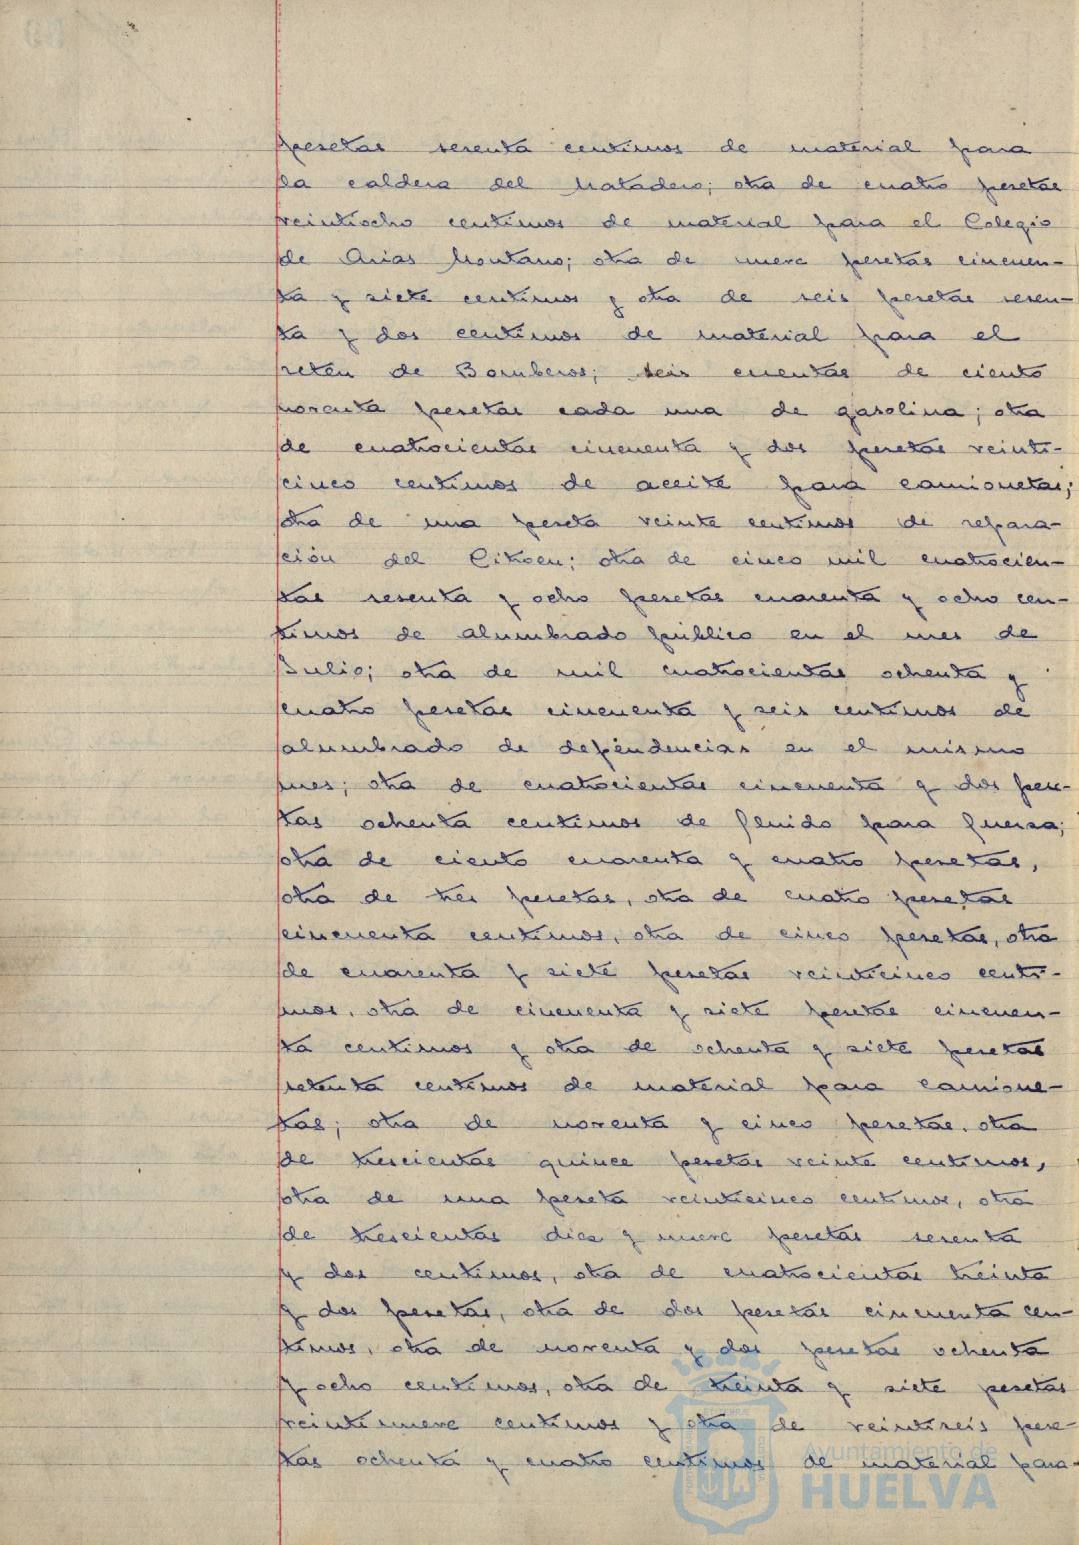 pesetas sesenta centimos de material para
la caldera del Matadero; otra de cuatro pesetas
veintiocho centimos de material para el Colegio
de Arias Montano; otra de nueve pesetas cincuen-
ta y siete centimos y otra de seis pesetas sesen-
ta y dos centimos de material para el
reten de Bomberos; seis cuentas de ciento
noventa pesetas cada una de gasolina; otra
de cuatrocientas cincuenta y dos pesetas veinti-
cinco centimos de aceite para camionetas;
otra de una peseta veinte centimos de repara-
ción del Citroen; otra de cinco mil cuatrocien-
tas sesenta y ocho pesetas cuarenta y ocho cen-
timos de alumbrado público en el mes de
Julio; otra de mil cuatrocientas ochenta y
cuatro pesetas cincuenta y seis centimos de
alumbrado de dependencias en el mismo
mes; otra de cuatrocientas cincuenta y dos pese-
tas ochenta centimos de fluido para fuerza;
otra de ciento cuarenta y cuatro pesetas,
otra de tres pesetas, otra de cuatro pesetas
cincuenta centimos, otra de cinco pesetas, otra
de cuarenta y siete pesetas veinticinco centi-
mos, otra de cincuenta y siete pesetas cincuen-
ta centimos y otra de ochenta y siete pesetas
setenta centimos de material para camione-
tas; otra de noventa y cinco pesetas, otra
de trescientas quince pesetas veinte centimos,
otra de una peseta veinticinco centimos, otra
de trescientas diez y nueve pesetas sesenta
y dos centimos, otra de cuatrocientas treinta
y dos pesetas, otra de dos pesetas cincuenta cen-
timos, otra de noventa y dos pesetas ochenta
y ocho centimos, otra de treinta y siete pesetas
veintinueve centimos y otra de veintiseis pese-
tas ochenta y cuatro centimos de material para
Ayuntamiento de
HUELVA